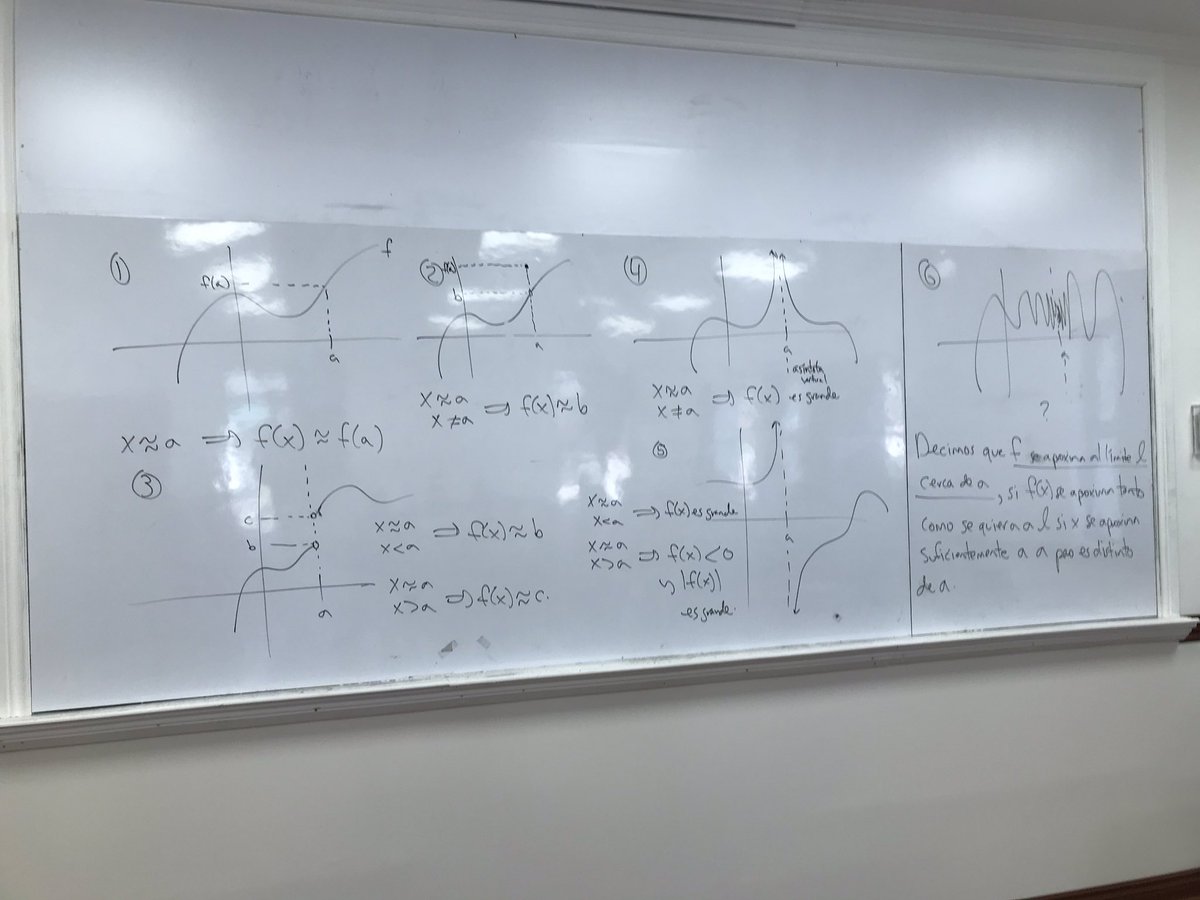 ①
f
f(a)
a
x ≈ a ⇒ f(x) ≈ f(a)
②
f(a)
b
a
x ≈ a
x ≠ a ⇒ f(x) ≈ b
③
c
b
a
x ≈ a
x < a ⇒ f(x) ≈ b
x ≈ a
x > a ⇒ f(x) ≈ c.
④
a
asíntota
vertical
x ≈ a
x ≠ a ⇒ f(x) es grande
⑤
a
x ≈ a
x < a ⇒ f(x) es grande
x ≈ a
x > a ⇒ f(x) < 0
y |f(x)|
es grande.
⑥
a
?
Decimos que f se aproxima al límite l
cerca de a, si f(x) se aproxima tanto
como se quiera a l si x se aproxima
suficientemente a a pero es distinto
de a.